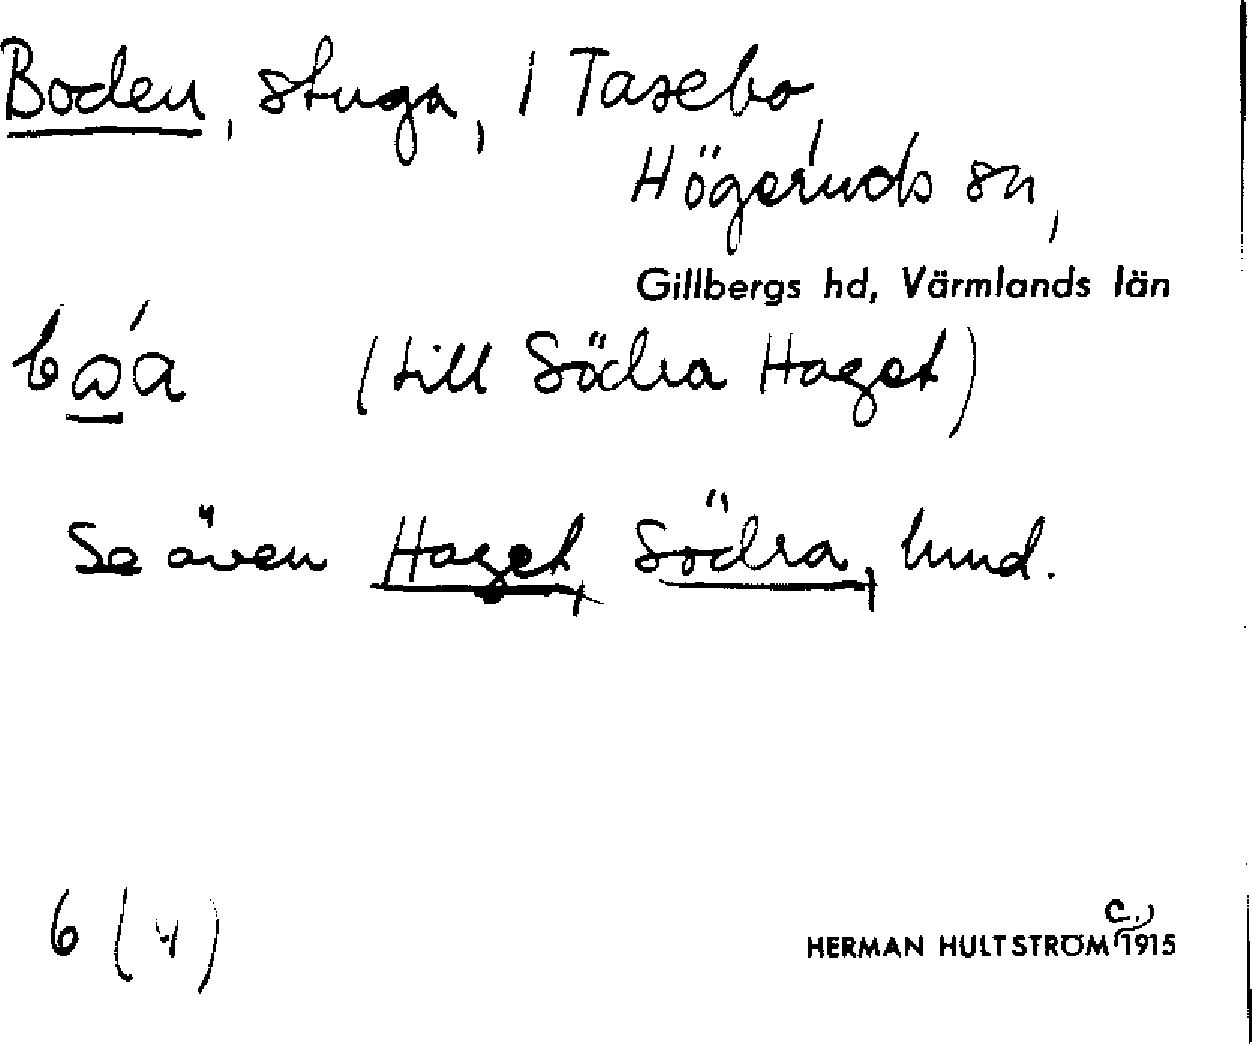 Boden, stuga, i Tasebo,
Högeruds sn,
Gillbergs hd, Värmlands län
(till Södra Haget)
Se även Haget, Södra, hmd.
6 (4)
HERMAN HULTSTRÖM C. 1915